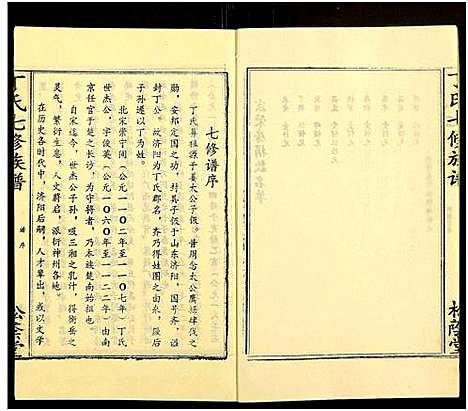 丁氏七修族谱
七修谱序
丁氏鼻祖源于姜太公子伋。昔周念太公鹰扬肆伐之
勋,安邦定国之功,封其子伋于山东济阳,国号齐,溢
封丁公。故济阳为丁氏郡名,齐乃得姓国之由来,厥后
子孙遂以丁为姓。
北宋崇宁间(公元一一〇二年至一一〇七年)丁氏
世杰公,字俊英(公元一〇六〇年至一一二二年)由南
京任官于楚之长沙,为守将者,乃本族楚南始祖也。
自宋迄今,世杰公子孙,吸三湘之乳汁,得衡岳之
灵气,繁衍生息,人文蔚启,派衍神州各地。
在历史各时代中,济阳后嗣,人才辈出,或以文学
丁氏七修族谱
谱序
松荫堂
松荫堂